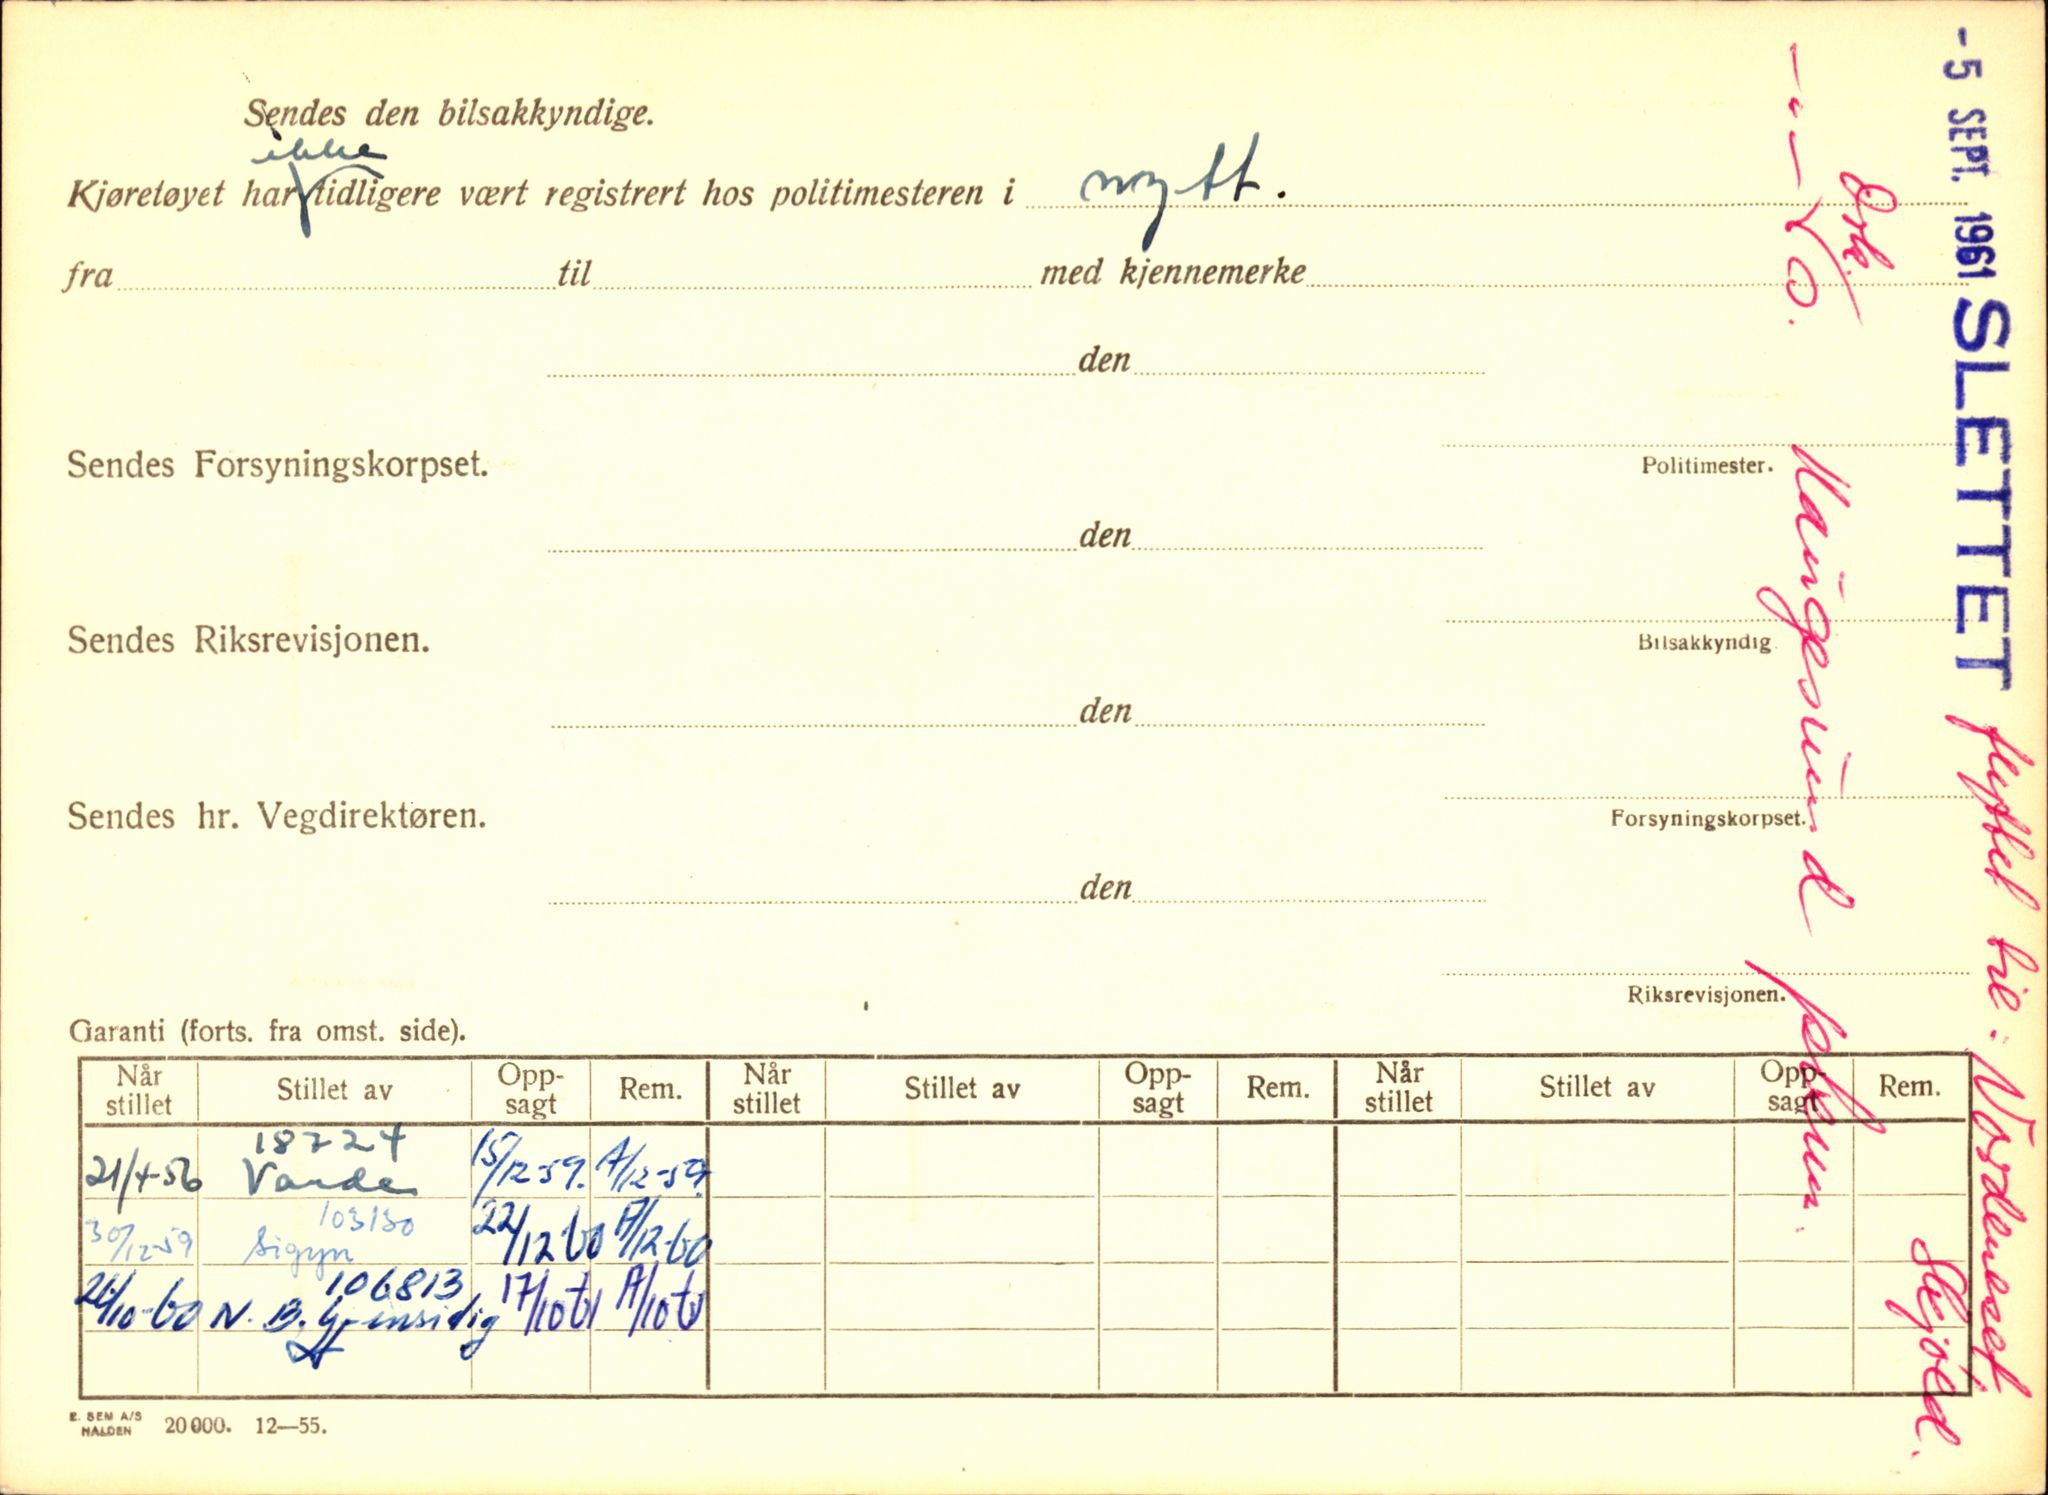 Sendes den bilsakkyndige.
ikke
Kjøretøyet har tidligere vært registrert hos politimesteren i nytt.
fra til med kjennemerke
den
Politimester.
Sendes Forsyningskorpset.
den
Bilsakkyndig
Sendes Riksrevisjonen.
den
Forsyningskorpset.
Sendes hr. Vegdirektøren.
den
Riksrevisjonen.
Garanti (forts. fra omst. side).
Når stillet Stillet av Opp-sagt Rem. Når stillet Stillet av Opp-sagt Rem. Når stillet Stillet av Opp-sagt Rem.
18724
21/4-56 Varde 15/12-59. A/12-59.
103130
30/12-59 Sigyn 22/12 60 A/12-60
106813
N. B. Gjensidig 17/10 61 A/10 61
E. SEM A/S
HALDEN
20000. 12—55.
- 5 SEPT. 1961 SLETTET flyttet til: Nordeneset
Skjold.
Haugesund pol.kam.